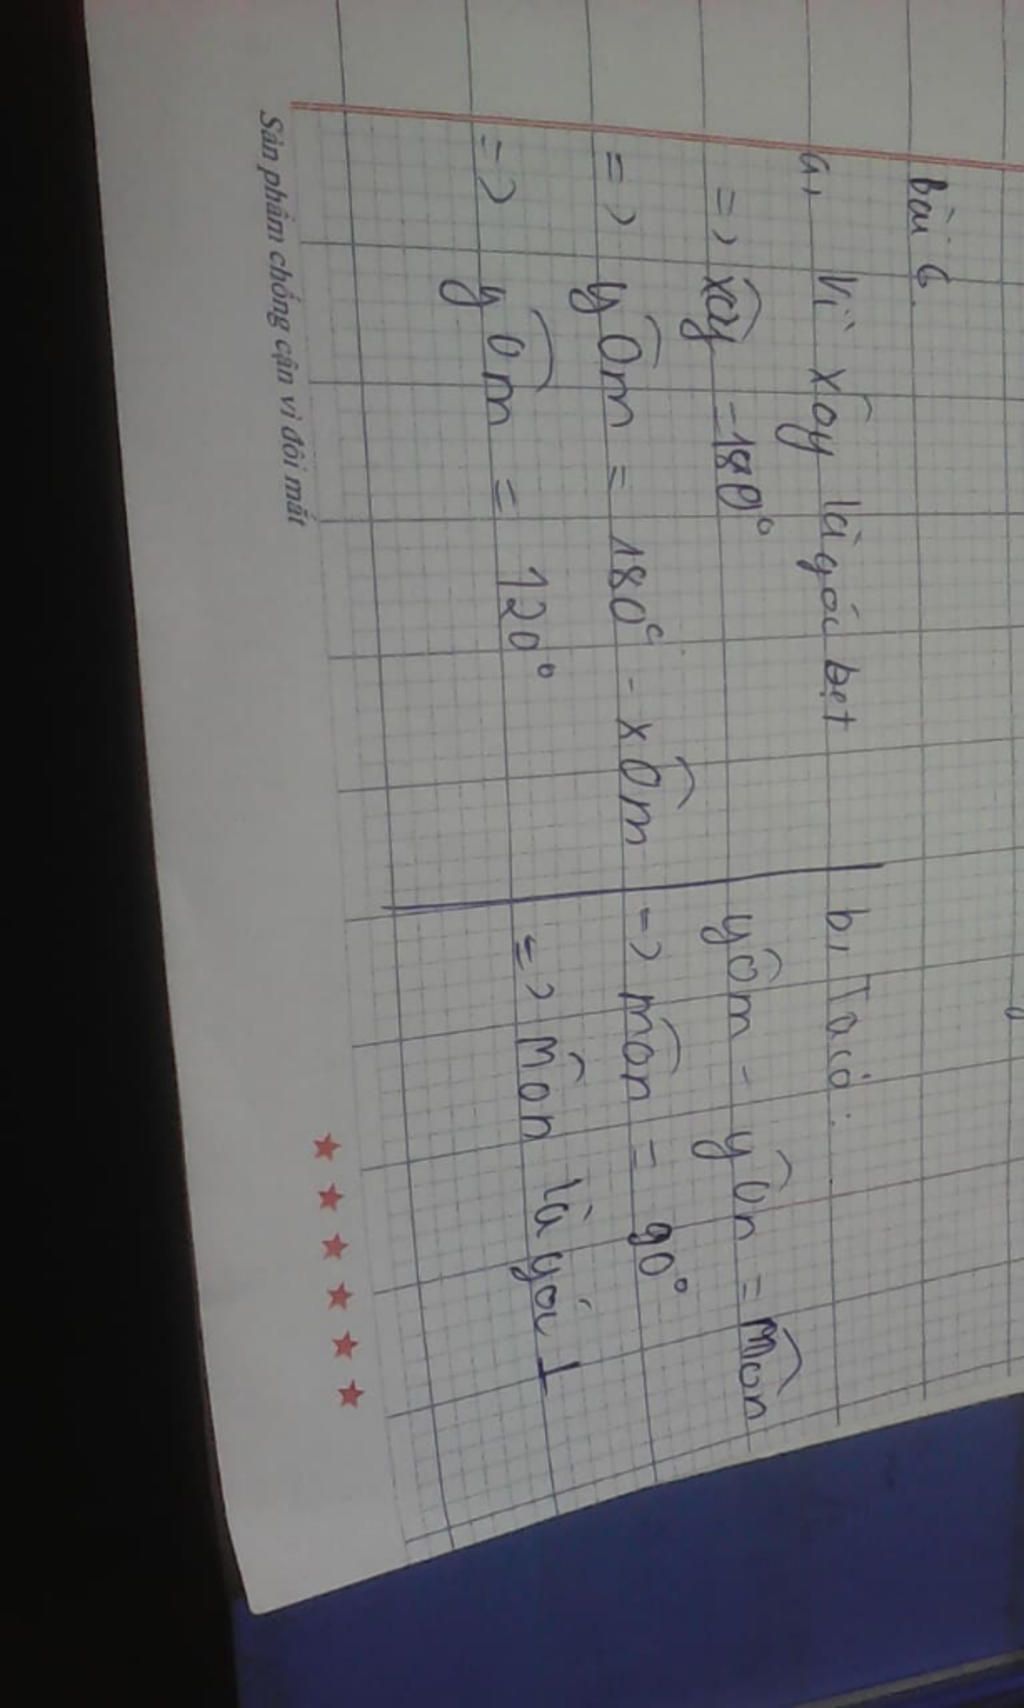 Bài 6
a, Vì xôy là góc bẹt
=> xôy = 180°
=> yôm = 180° - xôm
=> yôm = 120°
b, Ta có:
yôm - yôn = môn
=> môn = 90°
=> môn là góc ⊥
Sản phẩm chống cận vì đôi mắt